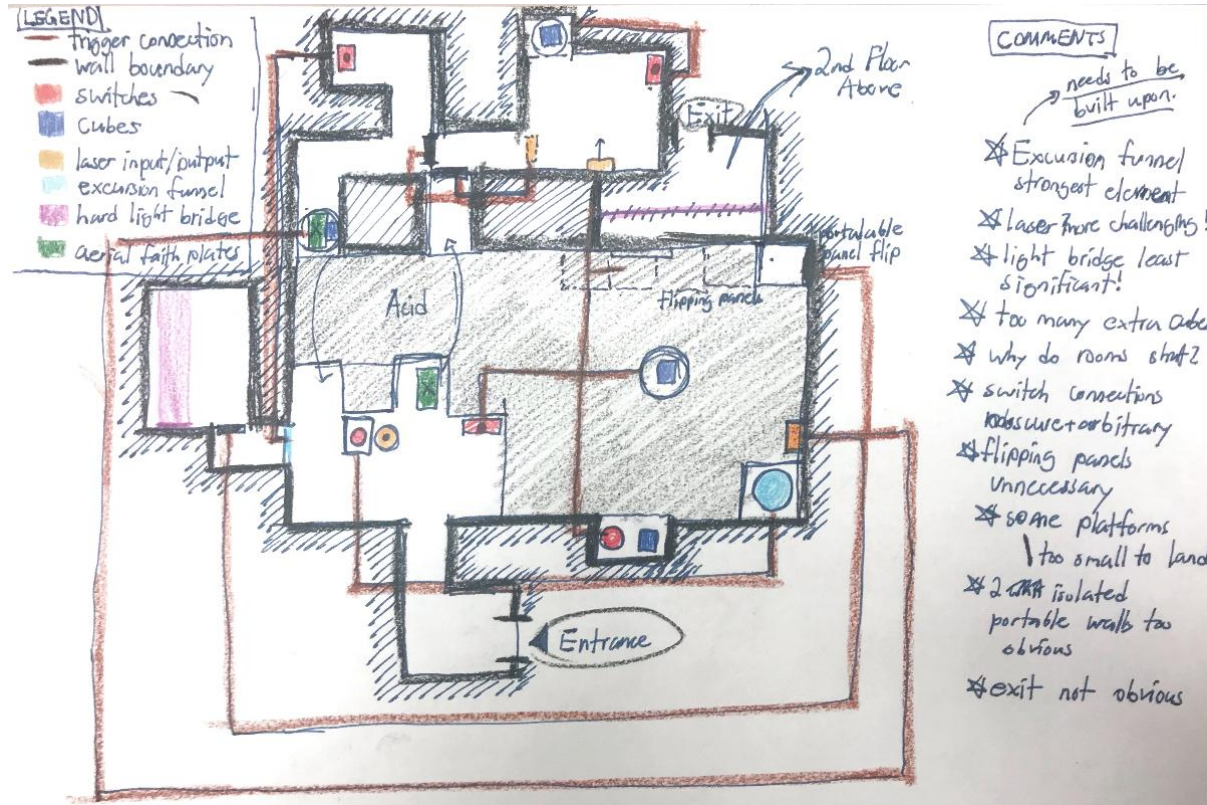 LEGEND
trigger connection
wall boundary
switches
cubes
laser input/output
excursion funnel
hard light bridge
aerial faith plates
2nd Floor
Above
Exit
portalable
panel flip
flipping panels
Acid
Entrance
COMMENTS
needs to be
built upon.
Excursion funnel
strongest element
laser more challenging!
light bridge least
significant!
too many extra cubes
why do rooms shut?
switch connections
obscure + arbitrary
flipping panels
unneccessary
some platforms
too small to land
2 isolated
portable walls too
obvious
exit not obvious